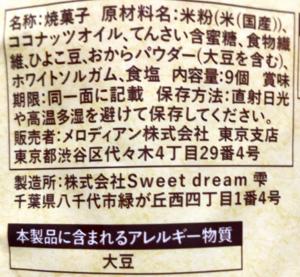 名称:焼菓子 原材料名:米粉(米(国産))、
ココナッツオイル、てんさい含蜜糖、食物繊
維、ひよこ豆、おからパウダー(大豆を含む)、
ホワイトソルガム、食塩 内容量:9個 賞味
期限:同一面に記載 保存方法:直射日光
や高温多湿を避けて保存してください。
販売者:メロディアン株式会社 東京支店
東京都渋谷区代々木4丁目29番4号
製造所:株式会社Sweet dream 雫
千葉県八千代市緑が丘西四丁目1番4号
本製品に含まれるアレルギー物質
大豆